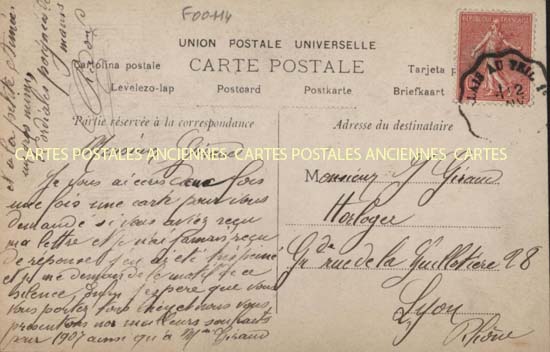 F00114
UNION POSTALE UNIVERSELLE
Cartolina postale CARTE POSTALE Tarjeta p
Levelezo-lap Postcard Postkarte Briefkaart
RÉPUBLIQUE FRANÇAISE
Partie réservée à la correspondance
Adresse du destinataire
CARTES POSTALES ANCIENNES CARTES POSTALES ANCIENNES CARTES
Monsieur Giraud
Je vous ai écris deux fois
une fois une carte pour vous
demandé si vous aviez reçu
ma lettre et je n'ai jamais reçu
de réponse j'en ai été très peiné
et je me demande le motif de ce
silence enfin j'espère que vous
vous portez tous chez vous
présentons nos meilleurs souhaits
pour 1907 ainsi qu'à Mme Giraud
et à la petite
cordiales poignées de
mains
Monsieur J Giraud
Horloger
Gde rue de la Guillotière 28
Lyon
Rhône